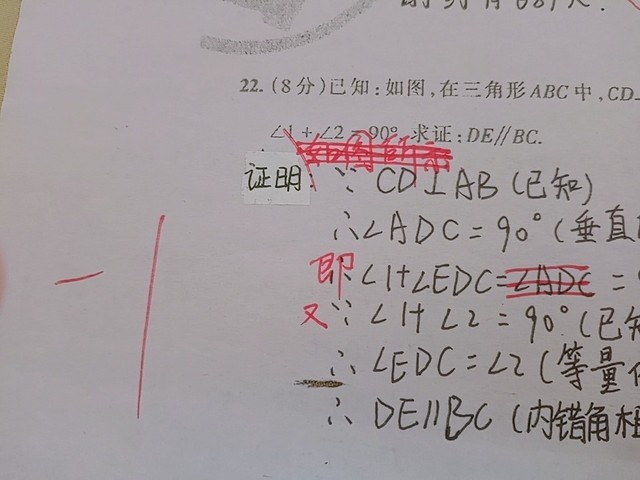 22. (8分)已知:如图,在三角形ABC中,CD⊥
∠1+∠2=90°,求证:DE∥BC.
如图所示
证明: ∵ CD⊥AB (已知)
∴∠ADC=90°(垂直
即 ∴∠1+∠EDC=∠ADC =
又 ∵ ∠1+∠2=90°(已知
∴ ∠EDC=∠2 (等量
∴ DE∥BC (内错角相
一 1